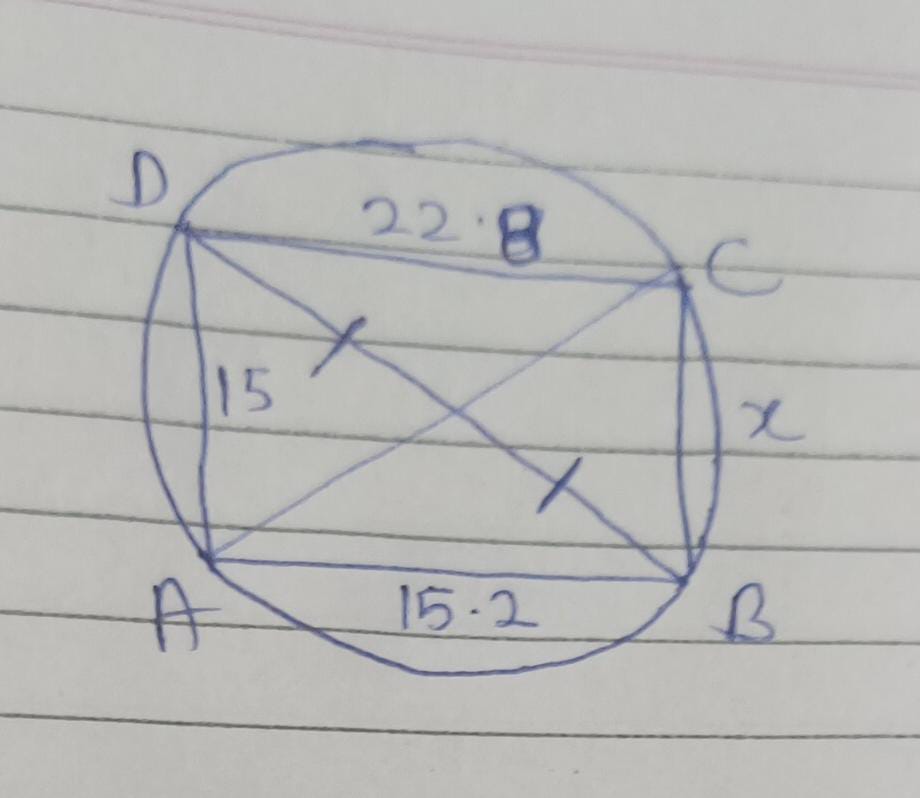 D
22.8
C
15
x
A
15.2
B